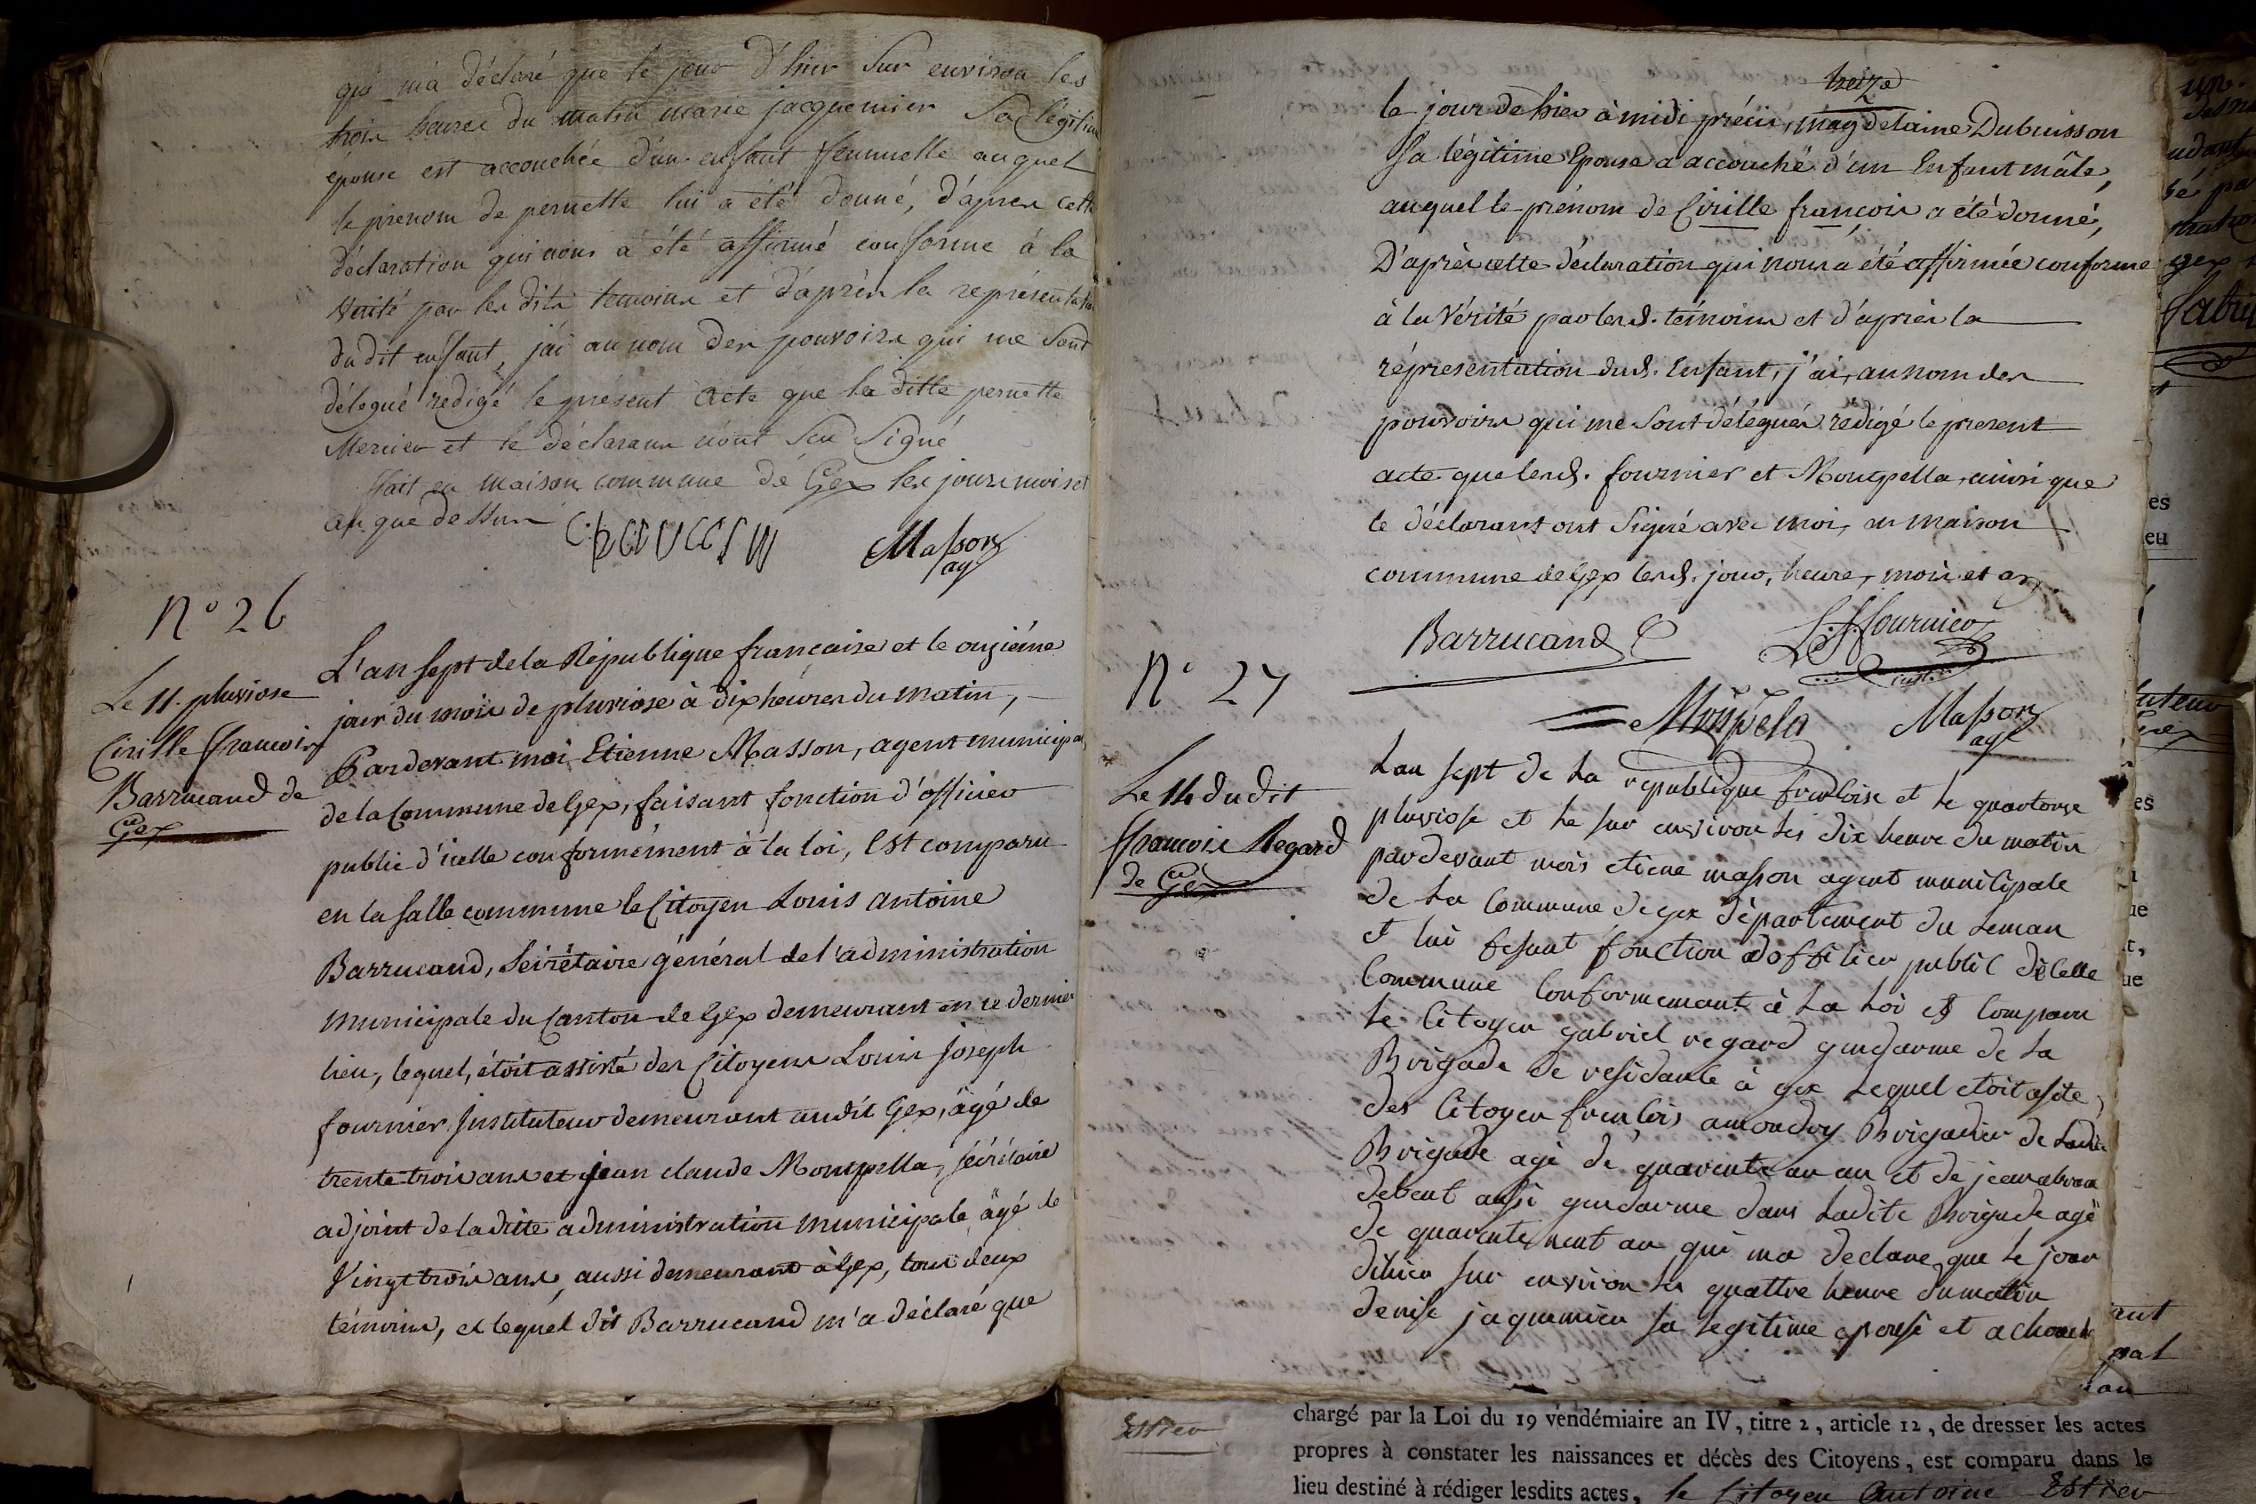 qui m'a déclaré que le jour d'hier sur environ les
trois heures du matin marie jacquemier sa légitime
épouse est accouchée d'un enfant femmelle auquel
le prenom de pernette lui a été donné, d'après cette
déclaration qui nous a été affirmé conforme à la
vérité par les dits temoins et d'après la représentation
du dit enfant, j'ai au nom des pouvoirs qui me sont
délegué redigé le présent acte que la ditte pernette
Mercier et le déclarant n'ont seu signé
fait en maison commune de Gex les jours mois et
an que dessus
Masson
ag
N° 26
Le 11. pluviose
Cirille françois
Barrucand de
Gex
L'an sept de la République française et le onzième
jour du mois de pluviose à dix heures du matin,
Pardevant moi Etienne Masson, agent municipal
de la Commune de Gex, faisant fonction d'officier
public d'icelle conformément à la loi, est comparu
en la salle commune le Citoyen Louis Antoine
Barrucand, Secrétaire général de l'administration
municipale du Canton de Gex demeurant en ce dernier
lieu, lequel, étoit assisté des Citoyens Louis Joseph
fournier, Instituteur demeurant audit Gex, âgé de
trente trois ans et jean claude Montpella, sécrétaire
adjoint de la ditte administration municipale âgé de
vingt trois ans, aussi demeurant à Gex, tous deux
témoins, et lequel dit Barrucand m'a déclaré que
treize
le jour de hier à midi précis, magdelaine Dubuisson
sa légitime Epouse a accouché d'un Enfant mâle,
auquel le prénom de Cirille françois a été donné,
D'après cette déclaration qui nous a été affirmée conforme
à la Vérité par lesd. témoins et d'après la
réprésentation dud. Enfant, j'ai, au nom des
pouvoirs qui me sont délégués redigé le present
acte que lesd. fournier et Montpella, ainsi que
le déclarant ont signé avec moi, en maison
commune de Gex lesd. jour, heure, mois et an
Barrucand
L. J. fournier
inst.
Monpela
Masson
agt
N° 27
Le 14 du dit
françois Regard
de Gex
Lan sept de la republique francoise et le quantorse
pluviose et le sur environ les dix heure du matin
pardevant mois etiene masson agent municipale
de la Commune de gex département du Leman
et lui fesant fonction doffilier public dicelle
Commune Conformemant à La Loi est Comparu
Le Citoyen gabriel regard gendarme de La
Brigade de residante à gex Lequel etoit asite
des Citoyen francois amoudry Brigadier de Ladite
Brigade agé de quarente un an et de jean
debeut aussi gendarme dans Ladite Brigade agé
de quarente neuf an qui ma declare que le jour
dhier sur environ les quattre heure du matin
denise jaquemier sa Legitime epouse et achouché
chargé par la Loi du 19 vendémiaire an IV, titre 2, article 12, de dresser les actes
propres à constater les naissances et décès des Citoyens, est comparu dans le
lieu destiné à rédiger lesdits actes, le Citoyen Antoine Estier
Estier